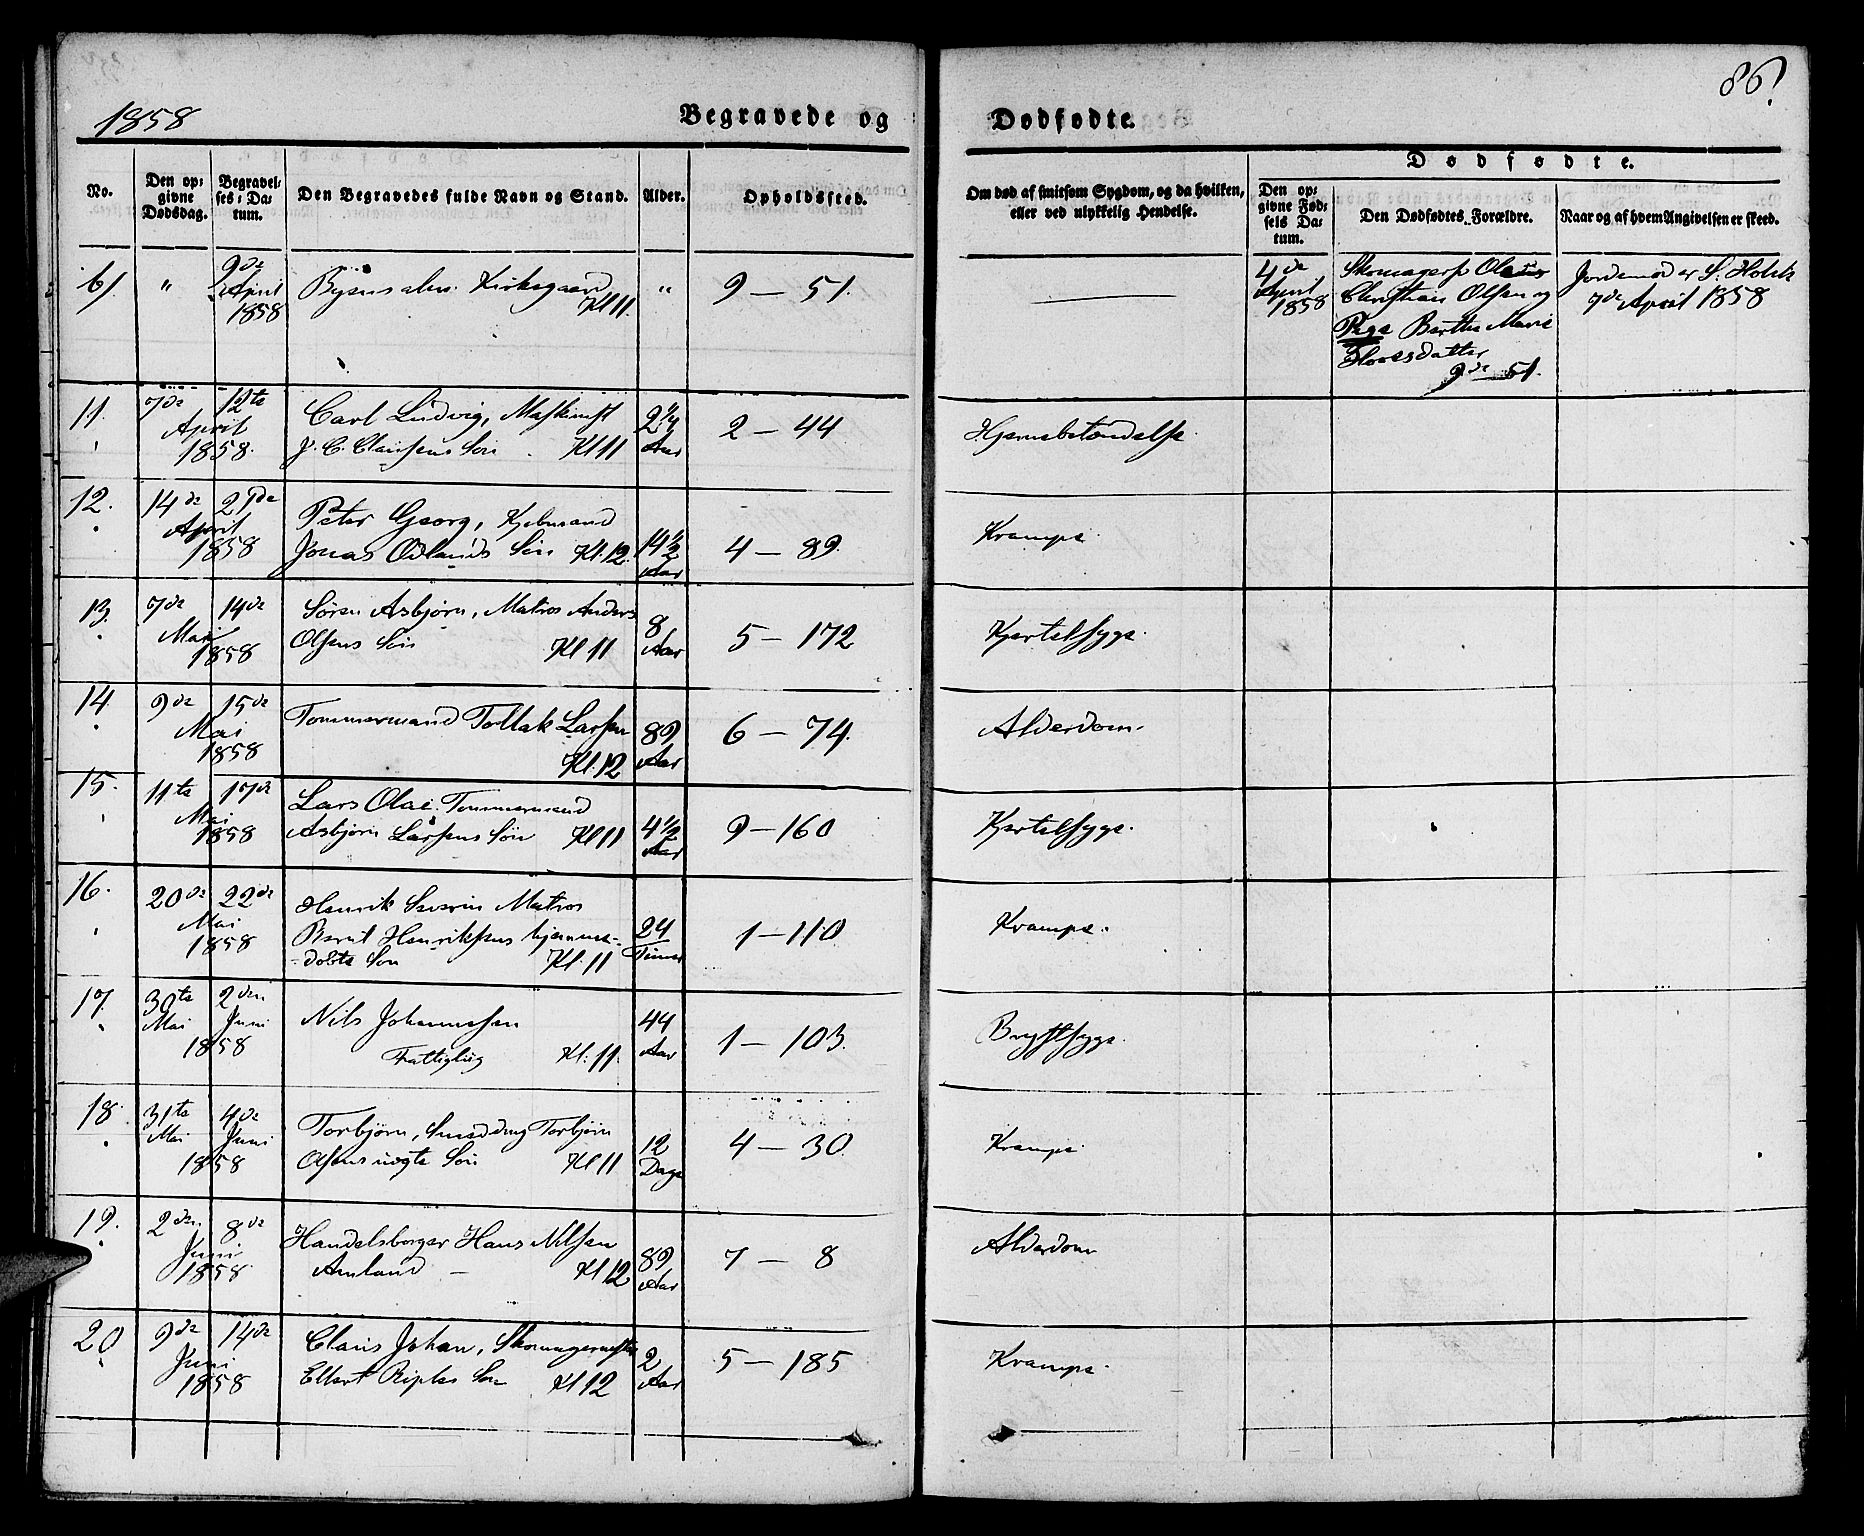 1858
Begravede og
Dødfødte.
86
No.
Den op-
givne
Dødsdag.
Begravel-
ses-Da-
tum.
Den Begravedes fulde Navn og Stand.
Alder.
Opholdssted.
Om død af smitsom Sygdom, og da hvilken,
eller ved ulykkelig Hendelse.
Dødfødte.
Den op-
givne Fød-
sels Da-
tum.
Den Dødfødtes Forældre.
Naar og af hvem Angivelsen er skeed.
6/ " 9de April 1858
Byens alm. Kirkegaard
Kl 11
" 9 — 51.
4de April 1858
Christian Olsen og
Pige Berthe Marie
9de — 51.
Jordemoder S. Holck
7de April 1858
11. 7de 12te
April
1858.
Carl Ludvig, Maskinist
J. C. Claussens Søn Kl 11
2 1/4
Aar
2 — 44
Hjernebetændelse
12. 14de 21de
April
1858
Peter Georg, Kjøbmand
Jonas Ødlands Søn Kl. 12
14 1/2
Aar
4 — 89.
Krampe.
13. 7de 14de
Mai
1858
Søren Asbjørn, Matros Anders
Olsens Søn Kl 11
8
Aar
5 — 172
Kjertelsyge.
14. 9de 15de
Mai
1858
Tømmermand Tollak Larsen
Kl. 12
89
Aar
6 — 74.
Alderdom.
15. 11te 17de
Mai
1858
Lars Olai. Tømmermand
Asbjørn Larsens Søn Kl 11
4 1/2
Aar
9 — 160
Kjertelsyge.
16. 20de 22de
Mai
1858
Henrik Severin Matros
Bernt Henriksens hjemme-
-døbte Søn Kl. 11
24
Timer
1 — 110
Krampe.
17. 30te 2den
Mai Juni
1858
Nils Johannesen
Fattiglig Kl. 11.
44
Aar
1 — 103.
Brystsyge.
18. 31te 4de
Mai Juni
1858
Torbjørn, Smeddreng Torbjørn
Olsens uægte Søn Kl 11
12
Dage
4 — 30.
Krampe.
19. 2den 8de
Juni
1858.
Handelsborger Hans Nilsen
Amland — Kl 12
89
Aar
7 — 8
Alderdom
20 9de 14de
Juni
1858
Claus Johan, Skomagermester
Ellert Søn Kl 12
2
Aar
5 — 185
Krampe.